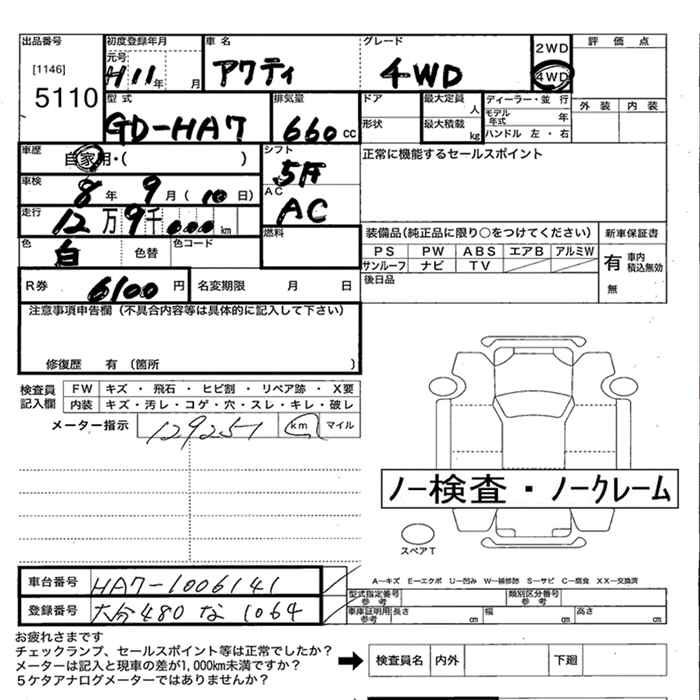 出品番号
[1146]
5110
初度登録年月
元号
H11年 月
車名
アクティ
グレード
4WD
2WD
4WD
評価点
外装 内装
型式
GD-HA7
排気量
660cc
ドア
形状
最大定員
人
最大積載
kg
ディーラー・並行
モデル年式 年
ハンドル 左・右
車歴
自家用・( )
シフト
5F
正常に機能するセールスポイント
車検
8年 9月(10日)
AC
AC
走行
12万9千000km
燃料
装備品(純正品に限り○をつけてください)
新車保証書
PS PW ABS エアB アルミW
サンルーフ ナビ TV
有 車内積込無効
無
色
白
色替
色コード
後日品
R券
6100円
名変期限 月 日
注意事項申告欄(不具合内容等は具体的に記入して下さい)
修復歴 有 (箇所 )
検査員記入欄
FW キズ・飛石・ヒビ割・リペア跡・X要
内装 キズ・汚レ・コゲ・穴・スレ・キレ・破レ
メーター指示
129251
km マイル
ノー検査・ノークレーム
スペアT
車台番号
HA7-1006141
登録番号
大分480な1064
A―キズ E―エクボ U―凹み W―補修跡 S―サビ C―腐食 XX―交換済
型式指定番号 参考
類別区分番号 参考
車庫証明用 参考
長さ cm 幅 cm 高さ cm
お疲れさまです
チェックランプ、セールスポイント等は正常でしたか?
メーターは記入と現車の差が1,000km未満ですか?
5ケタアナログメーターではありませんか?
検査員名 内外 下廻